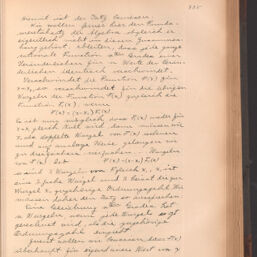 335
Hiermit ist der Satz bewiesen.
Wir wollen ferner hier den Funda-
mentalsatz der Algebra obgleich er
eigentlich nicht in diesen Zusammen-
hang gehört ableiten, dass jede ganze
rationale Funktion nten Grades einer
Veränderlichen für n Werte der Verän-
derlichen identisch verschwindet.
Verschwindet die Funktion F(x) für
x=x, so verschwindet für die übrigen
Wurzeln der Funktion F(x) zugleich die
Funktion F(x), wenn
F(x)=(x-x,)F(x)
Es ist nun möglich dass F(x) wieder für
x=x, gleich Null wird dann müssen wir
x, als doppelte Wurzel von F(x) rechnen
und auf analoge Weise gelangen wir
zu dreifachen
von F(x) hat F(x)=(x-x,)F(x)
so sind 2 Wurzeln von F gleich x, ist
eine 2 fache Wurzel und 2 heisst die zur
Wurzel x, zugehörige Ordnungszahl. Wir
müssen daher den Satz so aussprechen
Eine Gleichung nten Grades hat
n Wurzeln, wenn jede Wurzel so oft
gerechnet wird, als die zugehörige
Ordnungszahl angibt.
Zuerst wollen wir beweisen, dass F(x)
überhaupt für irgend einen Wert von x